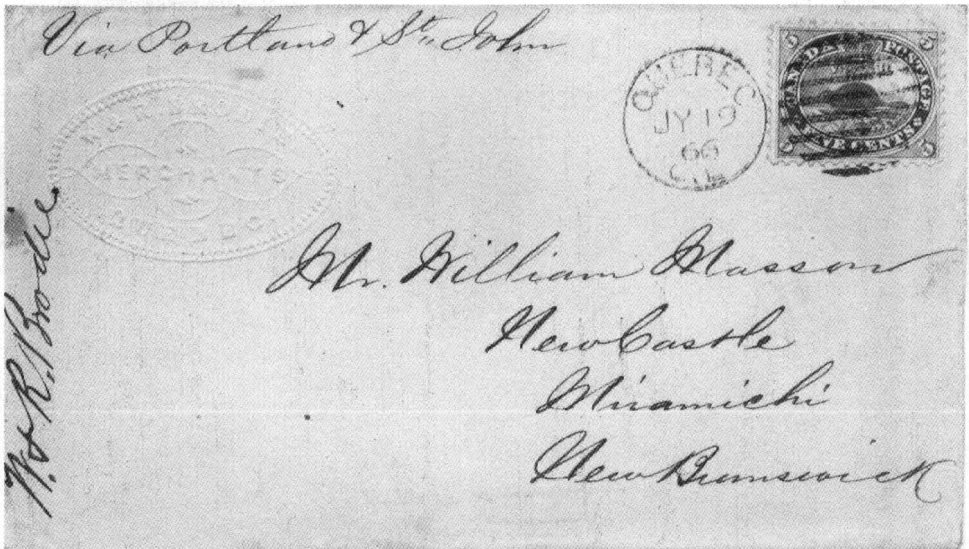 Via Portland & St. John
QUEBEC
JY 19
66
C.E.
5 5
CANADA POSTAGE
FIVE CENTS
5 5
W. & R. Brodie
MERCHANTS
QUEBEC
Mr. William Masson
New Castle
Miramichi
New Brunswick